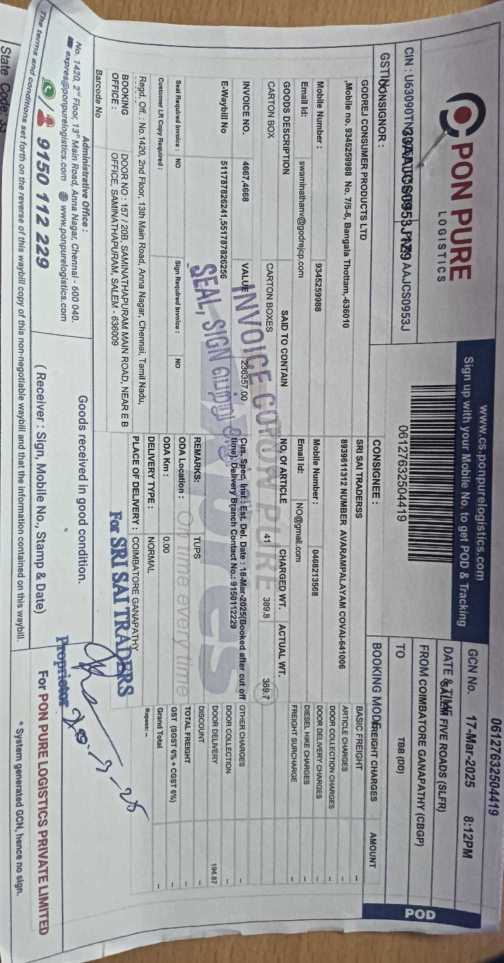 PON PURE
LOGISTICS
www.cs.ponpurelogistics.com
Sign up with your Mobile No. to get POD & Tracking
06127632504419
06127632504419
GCN No. 17-Mar-2025 8:12PM
DATE & TIME
SALEM FIVE ROADS (SLFR)
FROM COIMBATORE GANAPATHY (CBGP)
TO TBB (DD)
POD
CIN : U63090TN
AAJCS0953J
GSTIN
CONSIGNOR :
CONSIGNEE :
BOOKING MODE
GODREJ CONSUMER PRODUCTS LTD
,Mobile no. 9345259988 No. 7/5-6, Bangala Thottam,-636010
Mobile Number : 9345259988
Email Id: swaminathanv@godrejcp.com
SRI SAI TRADERSS
8939611312 NUMBER AVARAMPALAYAM COVAI-641006
Mobile Number : 0468213568
Email Id: NO@gmail.com
FREIGHT CHARGES AMOUNT
BASIC FREIGHT --
ARTICLE CHARGES --
DOOR COLLECTION CHARGES --
DOOR DELIVERY CHARGES --
DIESEL HIKE CHARGES --
FREIGHT SURCHARGE --
OTHER CHARGES --
DOOR COLLECTION --
DOOR DELIVERY 194.87
DISCOUNT --
TOTAL FREIGHT --
GST (SGST 6% + CGST 6%) --
Grand Total --
Rupees: --
GOODS DESCRIPTION SAID TO CONTAIN NO. OF ARTICLE CHARGED WT. ACTUAL WT.
CARTON BOX CARTON BOXES 41 389.8 389.7
INVOICE NO. 4667,4668 VALUE 236357.00
E-Waybill No 511787826241,551787826256
Cus. Spec. Inst : Est. Del. Date : 18-Mar-2025(Booked after cut off time), Delivery Branch Contact No.: 9150112229
INVOICE COPY
SEAL, SIGN
Seal Required Invoice : NO Sign Required Invoice : NO
Customer LR Copy Required :
REMARKS: TUPS
ODA Location :
ODA Km : 0.00
DELIVERY TYPE : NORMAL
PLACE OF DELIVERY : COIMBATORE GANAPATHY
On time every time
Regd. Off. : No.1420, 2nd Floor, 13th Main Road, Anna Nagar, Chennai, Tamil Nadu,
BOOKING OFFICE : DOOR NO : 157 / 20B, SAMINATHAPURAM MAIN ROAD, NEAR E B
OFFICE, SAMINATHAPURAM, SALEM - 636009
Barcode No
For SRI SAI TRADERS
Proprietor
Administrative Office :
No. 1420, 2nd Floor, 13th Main Road, Anna Nagar, Chennai - 600 040.
expres@ponpurelogistics.com www.ponpurelogistics.com
9150 112 229
Goods received in good condition.
( Receiver : Sign, Mobile No., Stamp & Date)
For PON PURE LOGISTICS PRIVATE LIMITED
The terms and conditions set forth on the reverse of this waybill copy of this non-negotiable waybill and that the information contained on this waybill.
* System generated GCN, hence no sign.
State Code